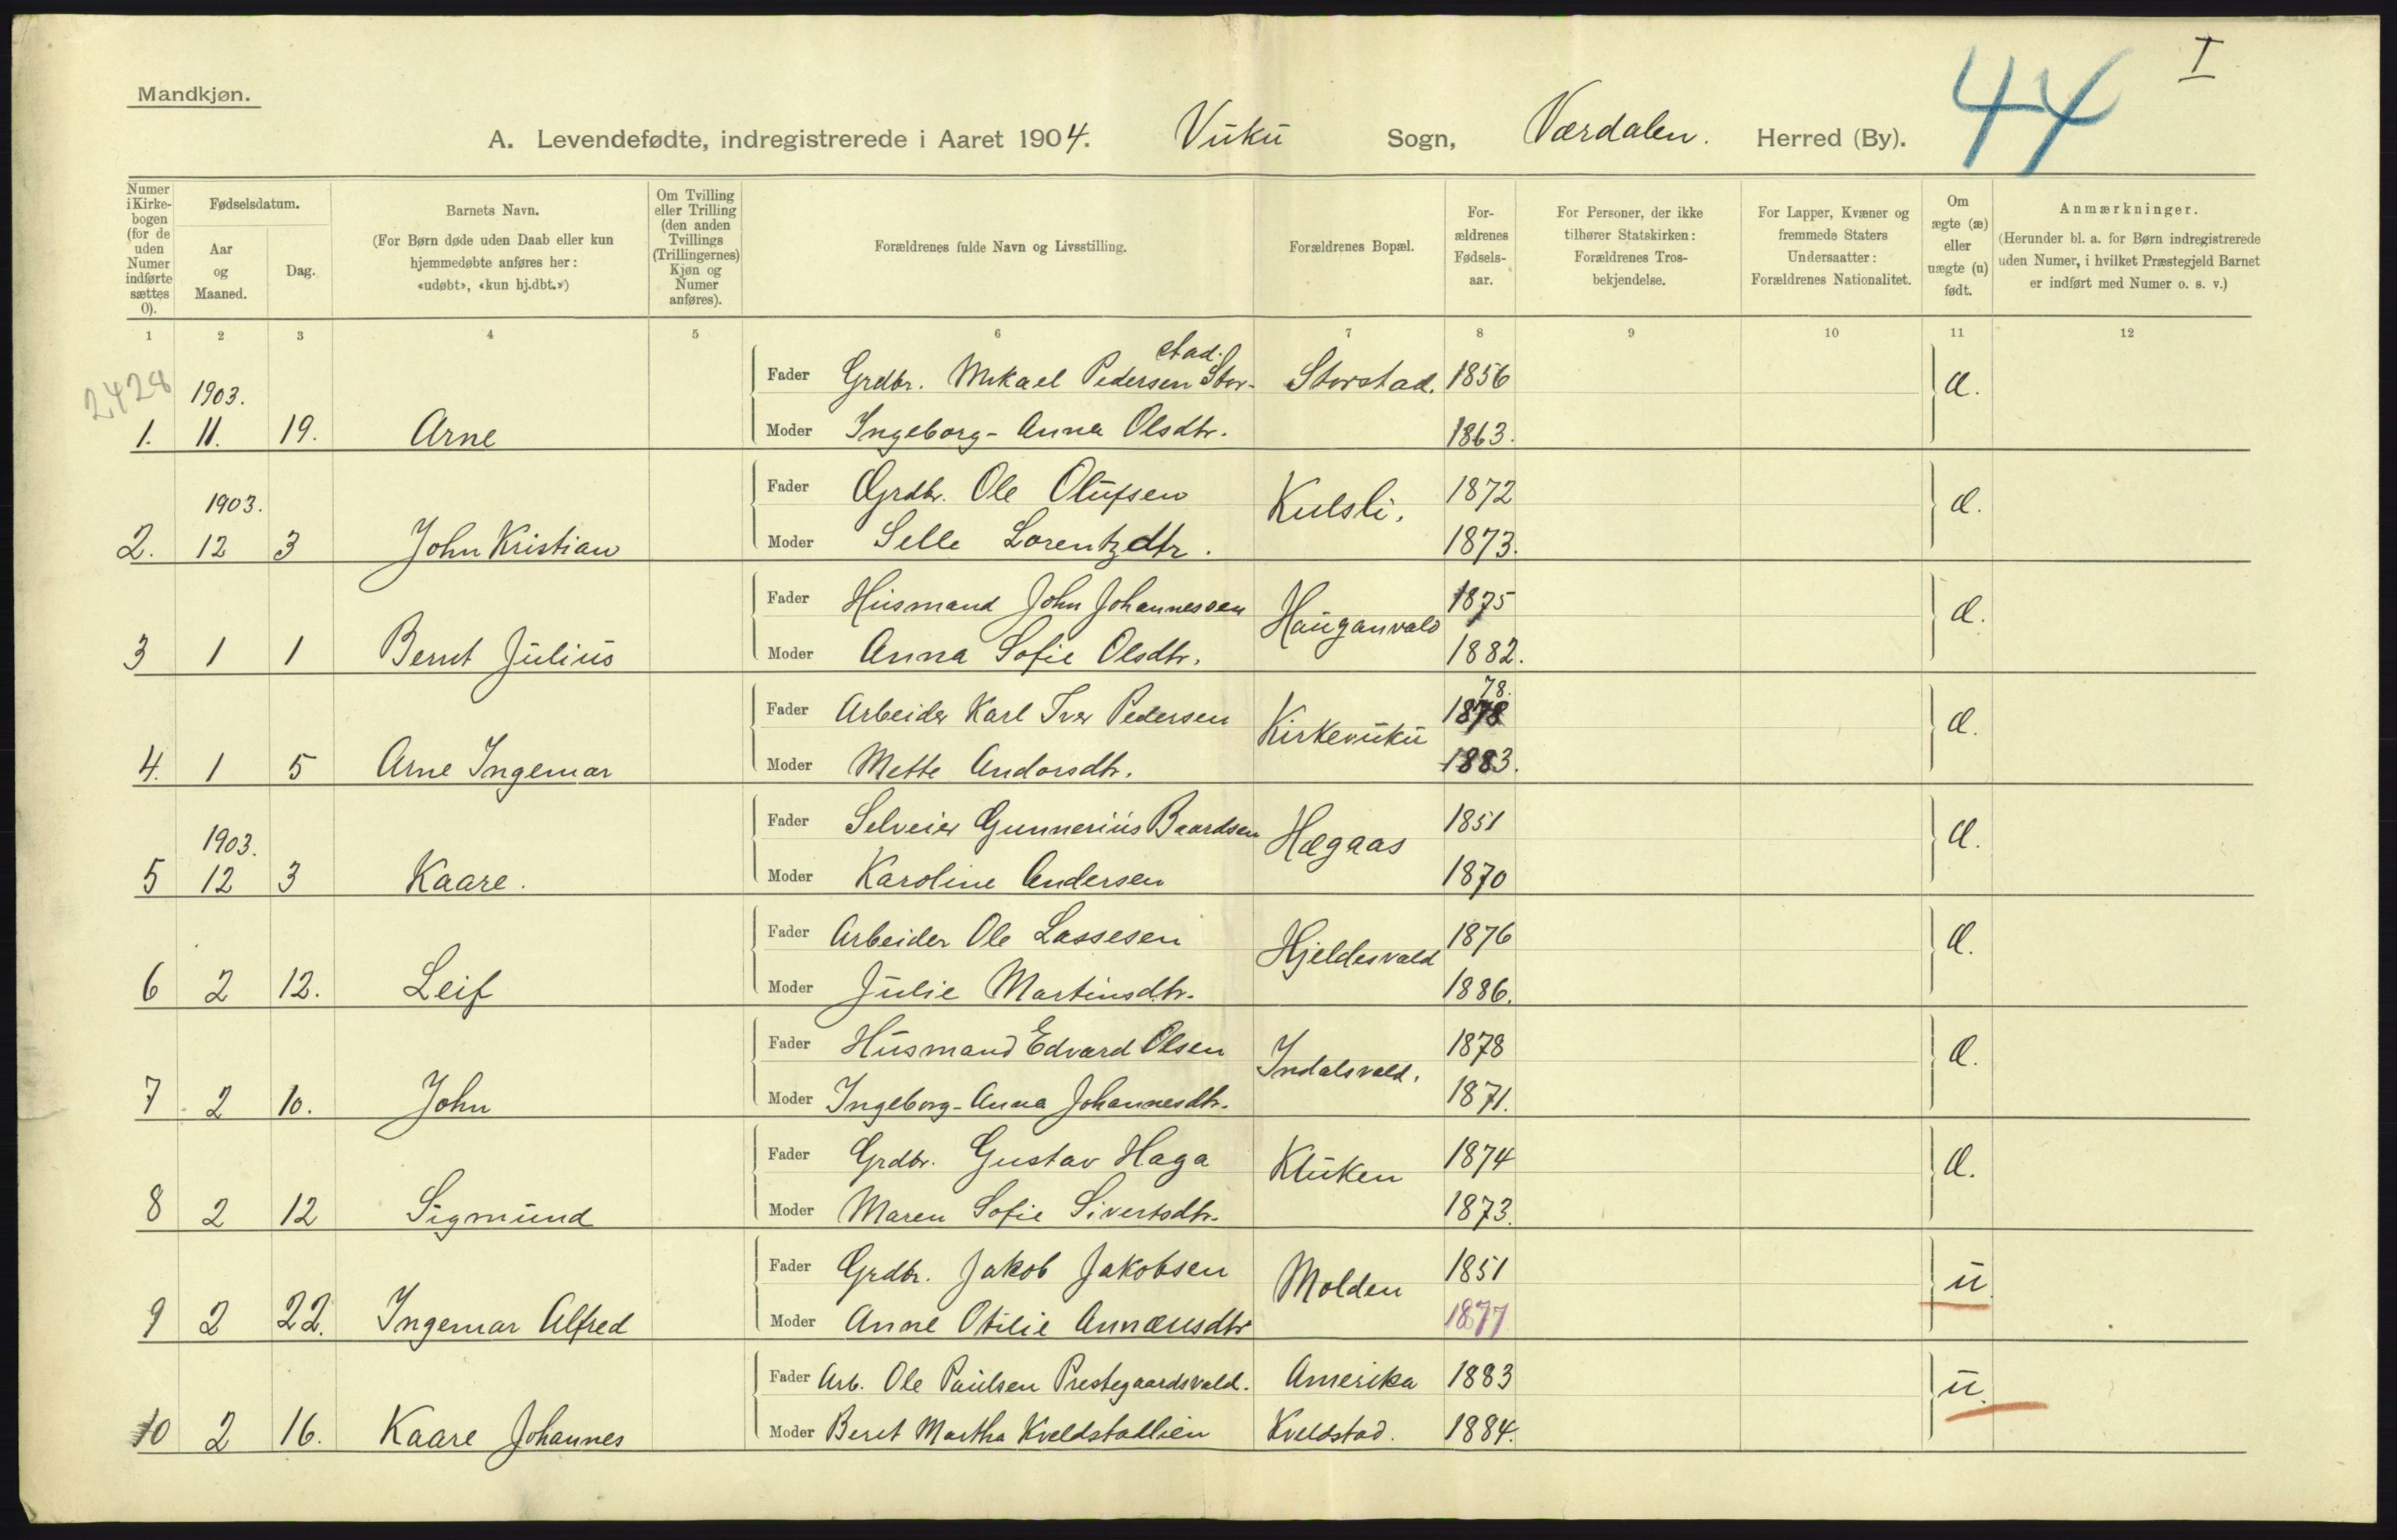 Mandkjøn.
I
44
A. Levendefødte, indregistrerede i Aaret 1904. Vuku Sogn, Værdalen. Herred (By).
Numer i Kirkebogen (for de uden Numer indførte sættes 0).
Fødselsdatum.
Aar og Maaned.
Dag.
Barnets Navn.
(For Børn døde uden Daab eller kun hjemmedøbte anføres her: «udøbt», «kun hj.dbt.»)
Om Tvilling eller Trilling (den anden Tvillings (Trillingernes) Kjøn og Numer anføres).
Forældrenes fulde Navn og Livsstilling.
Forældrenes Bopæl.
For-ældrenes Fødsels-aar.
For Personer, der ikke tilhører Statskirken: Forældrenes Tros-bekjendelse.
For Lapper, Kvæner og fremmede Staters Undersaatter: Forældrenes Nationalitet.
Om ægte (æ) eller uægte (u) født.
Anmærkninger.
(Herunder bl. a. for Børn indregistrerede uden Numer, i hvilket Præstegjeld Barnet er indført med Numer o. s. v.)
1 2 3 4 5 6 7 8 9 10 11 12
2428
1903.
Fader Grdbr. Mikael Pedersen Storstad. Storstad. 1856 æ.
1. 11. 19. Arne Moder Ingeborg-Anna Olsdtr. 1863.
1903.
Fader Grdbr. Ole Olufsen Kulsli. 1872 æ.
2. 12 3 John Kristian Moder Selle Lorentzdtr. 1873.
Fader Husmand John Johannessen Hauganvald 1875 æ.
3 1 1 Bernt Julius Moder Anna Sofie Olsdtr. 1882.
78.
Fader Arbeider Karl Iver Pedersen Kirkevuku 1878 æ.
4. 1 5 Arne Ingemar Moder Mette Andorsdtr. 1883.
1903.
Fader Selveier Gunnerius Baardsen Hægaas 1851 æ.
5 12 3 Kaare. Moder Karoline Andersen 1870
Fader Arbeider Ole Lassesen Hjeldesvald 1876 æ.
6 2 12. Leif Moder Julie Martinsdtr. 1886.
Fader Husmand Edvard Olsen Indalsvald. 1878 æ.
7 2 10. John Moder Ingeborg-Anna Johannesdtr. 1871.
Fader Grdbr. Gustav Haga Kluken 1874 æ.
8 2 12 Sigmund Moder Maren Sofie Sivertsdtr. 1873.
Fader Grdbr. Jakob Jakobsen Molden 1851 u.
9 2 22. Ingemar Alfred Moder Anne Otilie Annæusdtr 1877
Fader Arb. Ole Paulsen Prestegaardsvald. Amerika 1883 u.
10 2 16. Kaare Johannes Moder Beret Martha Kveldstadlien Kveldstad. 1884.